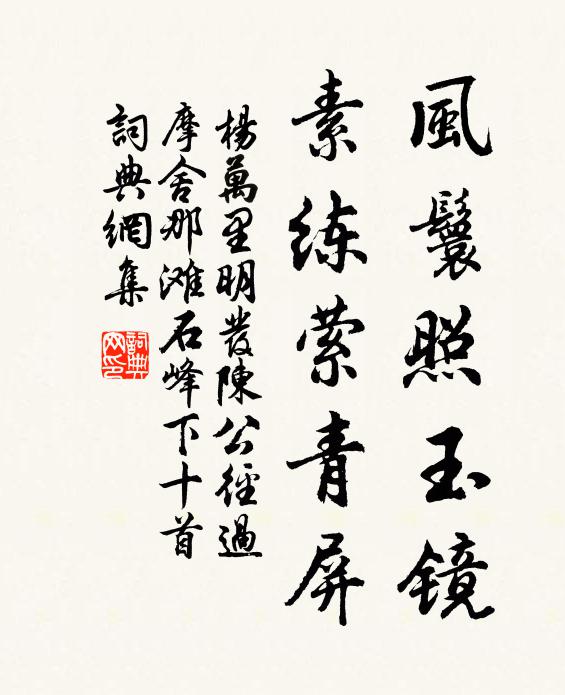 風鬟照玉镜
素练萦青屏
楊萬里明發陳公徑過
摩舍那滩石峰下十首
詞典網集
詞典
网印